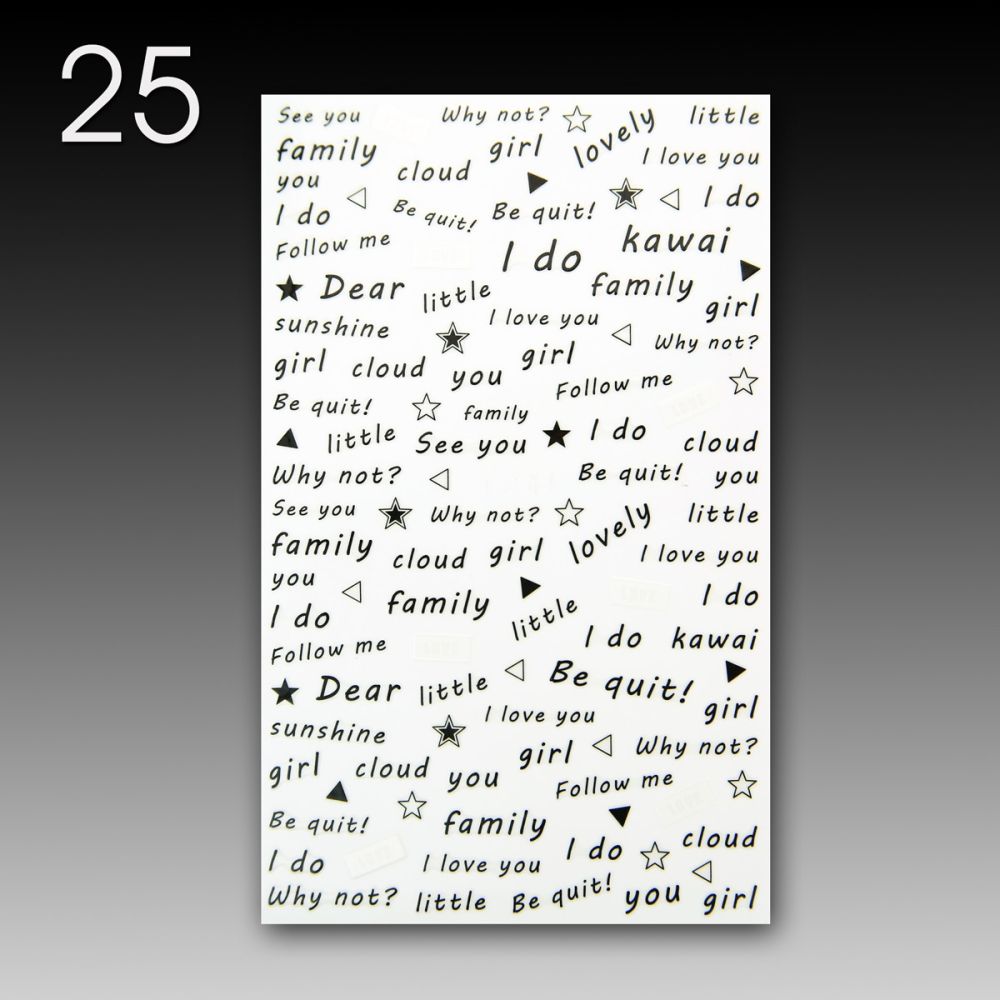 25
See you Why not? lovely little
family girl I love you
you cloud
I do Be quit! Be quit! I do
Follow me I do kawai
Dear little family girl
sunshine I love you Why not?
girl cloud you girl Follow me
Be quit! family
little See you I do cloud
Why not? Be quit! you
See you Why not? lovely little
family cloud girl I love you
you family I do
I do little
Follow me I do kawai
Dear little Be quit! girl
sunshine I love you
girl Why not?
girl cloud you Follow me
Be quit! family cloud
I do I love you I do
Why not? little Be quit! you girl